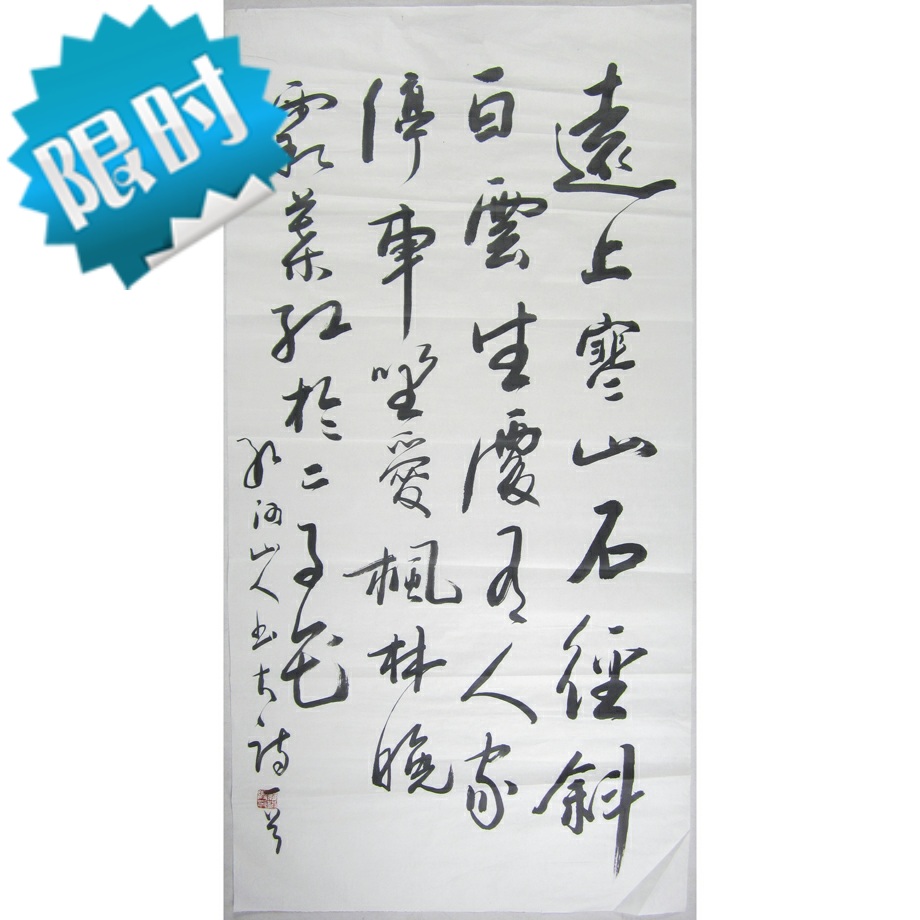 限时
遠上寒山石徑斜
白雲生處有人家
停車坐愛楓林晚
霜葉紅於二月花
山人书古诗一首